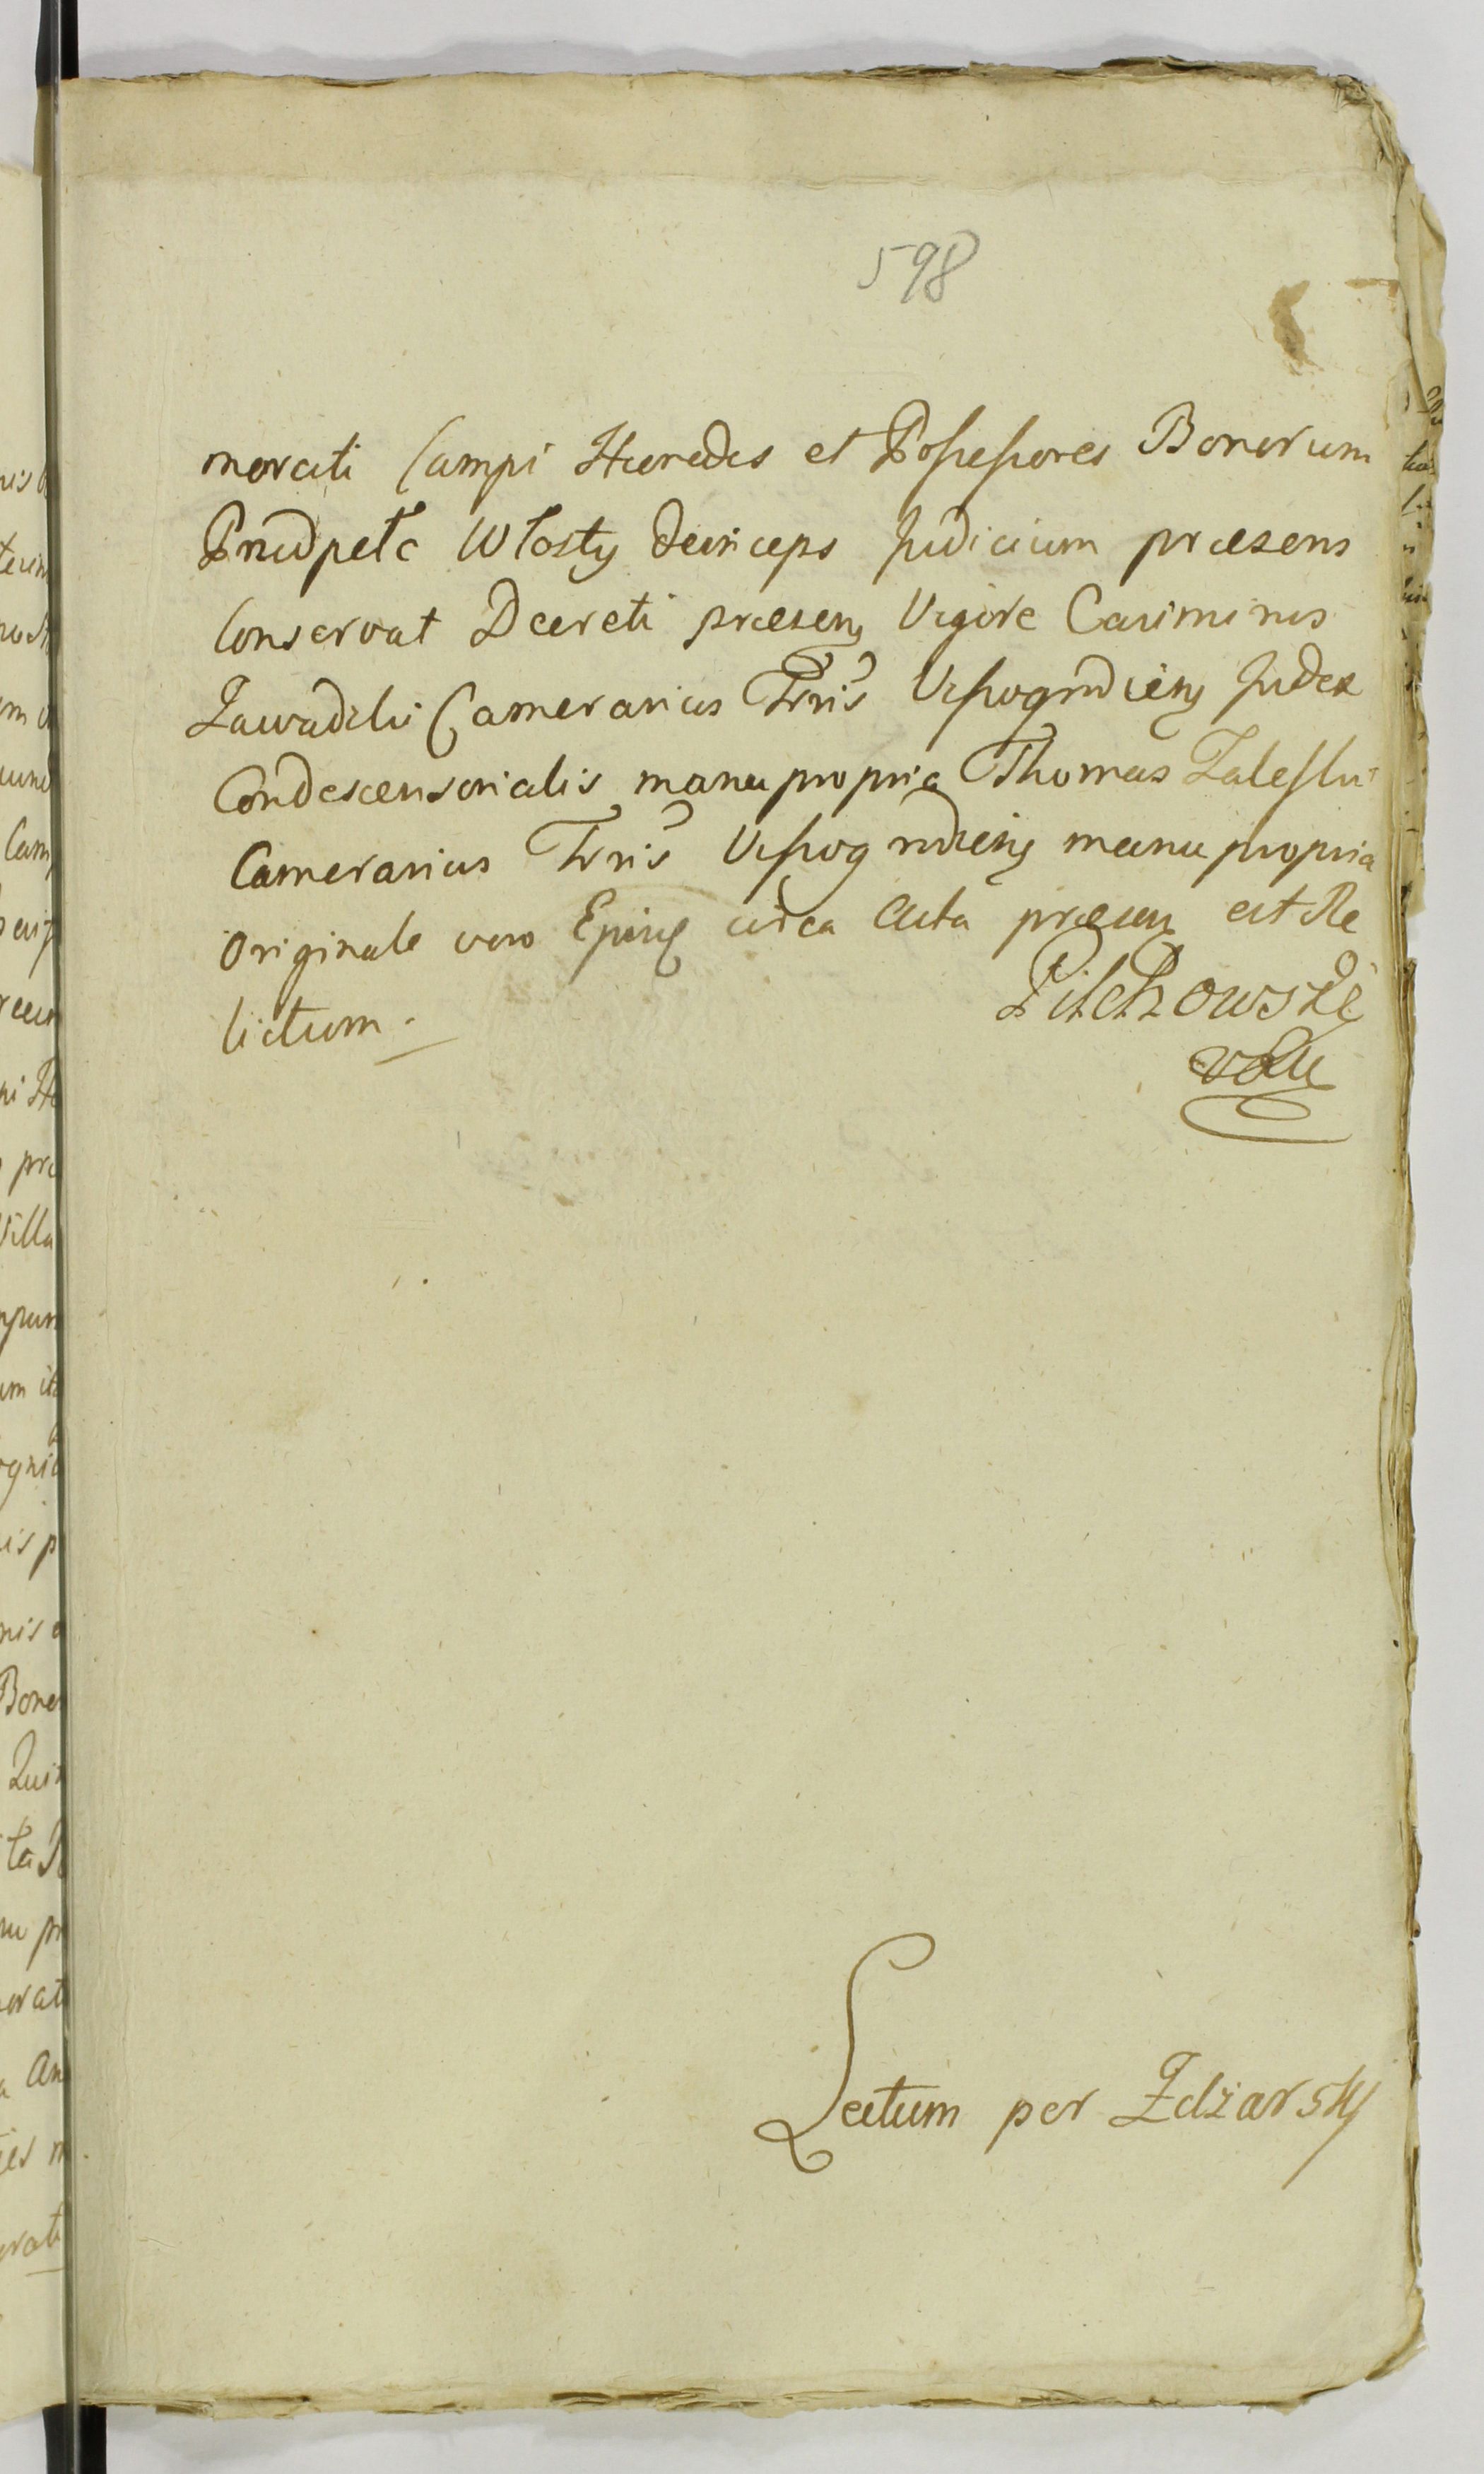 598
morati Campi Haeredes et Possessores Bonorum
Przdpełc Włosty deinceps Judicium praesens
Conservat Decreti praesens Vigore Casimirus
Zawadzki Camerarius Trris Vissogrdiens Judex
Condescensorialis manu propria Thomas Zaleski
Camerarius Trris Vissogrdiens manu propria
Originale vero Epius circa Acta praesens est Re
lictum.
Pilchowski
Lectum per Zdżarsky